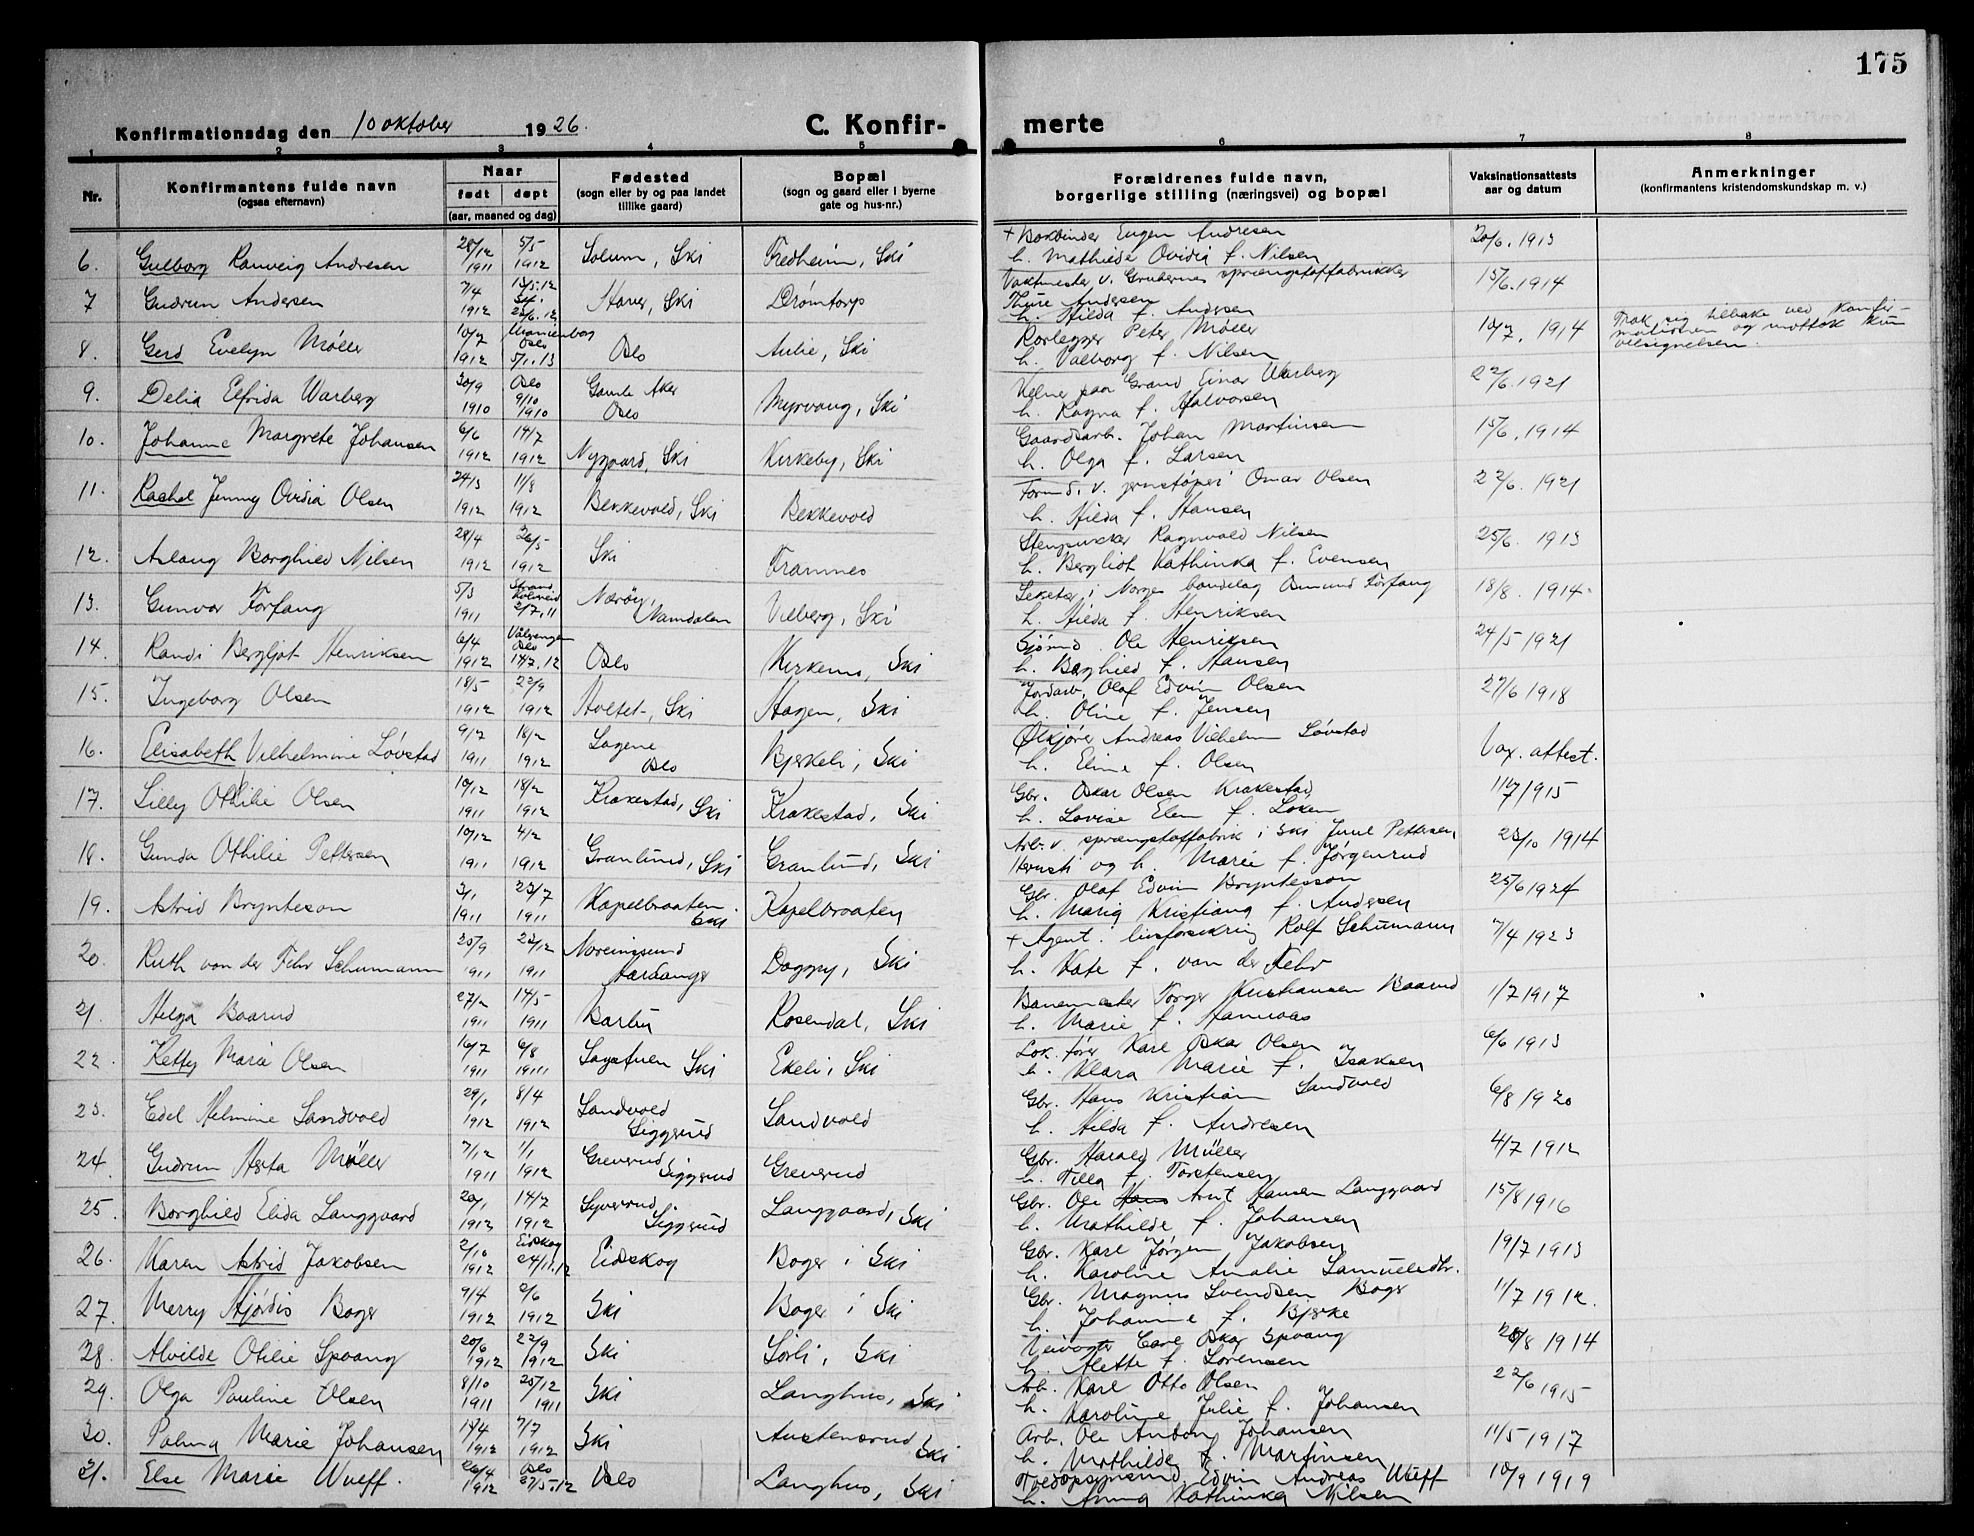 175
Konfirmationsdag den 10 oktober 1926.
C. Konfir-
merte
1 2 3 4 5 6 7 8
Nr.
Konfirmantens fulde navn
(ogsaa efternavn)
Naar
født døpt
(aar, maaned og dag)
Fødested
(sogn eller by og paa landet
tillike gaard)
Bopæl
(sogn og gaard eller i byerne
gate og hus-nr.)
Forældrenes fulde navn,
borgerlige stilling (næringsvei) og bopæl
Vaksinationsattests
aar og datum
Anmerkninger
(konfirmantens kristendomskundskap m. v.)
6. Gulborg Ranveig Andresen 28/12 1911 5/5 1912 Solum, Ski Fredheim, Ski
+ Bokbinder Eugen Andresen 20/6. 1913
h. Mathilde Ovidia f. Nilsen
7 Gudrun Andersen 7/4 1912 Haver, Ski Drømtorp
Vaktmester v. Grubernes sprængstoffabrikker 15/6. 1914
Thure Andersen
h. Hilda f. Andersen
8. Gerd Evelyn Møller 10/7 1912 Oslo 5/1. 13 Oslo Aulie, Ski
Rørlegger Peter Møller 10/7, 1914 Trak sig tilbake ved Konfir-
h. Valborg f. Nilsen mationen og mottok kun
velsignelsen.
9. Delia Elfrida Warberg 30/9 1910 Oslo 9/10 1910 Gamle Aker Oslo Myrvang, Ski
Kelner paa Grand Einar Warberg 22/6. 1921
h. Ragna f. Halvorsen
10. Johanne Margrete Johansen 6/6 1912 14/7 1912 Nygaard, Ski Kirkeby, Ski
Gaardsarb. Johan Martinsen 15/6, 1914
h. Olga f. Larsen
11. Rachel Jenny Ovidia Olsen 24/3 1912 11/8 1912 Bekkevold, Ski Bekkevold
Formd. v. jernstøperi Omar Olsen 22/6. 1921
h. Hilda f. Hansen
12. Aslaug Borghild Nilsen 28/4 1912 26/5 1912 Ski Framnes
Stenpukker Ragnvald Nilsen 25/6. 1913
h. Bergliot Kathinka f. Evensen
13. Gunvor Forfang 5/3 1911 2/7, 11 Nærøy, Namdalen Vilberg, Ski
Seketær i Norges bondelag Osmund Forfang 18/8. 1914.
h. Hilda f. Henriksen
14. Randi Bergljot Henriksen 6/4 1912 Vålerengen Oslo 14/7, 12 Oslo Kirkemo, Ski
Sjømd. Ole Henriksen 24/5 1921
h. Borghild f. Hansen
15. Ingeborg Olsen 18/5 1912 22/9 1912 Holtet, Ski Hagen, Ski
Jordarb. Olaf Edvin Olsen 27/6 1918
h. Oline f. Jensen
16. Elisabeth Vilhelmine Løvstad 9/7 1911 18/2 1912 Sagene Oslo Bjerkeli, Ski
Ølkjører Andreas Vilhelm Løvstad Vax. attest.
h. Eline f. Olsen
17. Lilly Othilie Olsen 10/12 1911 18/2 1912 Krakestad, Ski Krakestad, Ski
Gbr. Oskar Olsen Krakestad 11/7 1915
h. Lovise Elen f. Løken
18. Gunda Othilie Pettersen 10/12 1911 4/2 1912 Granlund, Ski Granlund, Ski
Arb. v. sprængstoffabrik i Ski Juul Pettersen 23/10 1914
og h. Marie f. Jørgenrud
19. Astrid Brynteson 3/1 1911 23/7 1911 Kapelbraaten Ski Kapelbraaten
Gbr. Olaf Edvin Bryntesson 25/6 1924
h. Marig Kristiana f. Andersen
20. Ruth von der Fehr Schumann 25/9 1911 23/12 1911 Noreimsund Hardanger Dagpy, Ski
+ Agent. livsforsikring Rolf Schumann 7/4 1923
h. Kate f. von der Fehr
21. Helga Baarud 27/2 1911 14/5 1911 Barbu Rosendal, Ski
Banemester Torger Kristiansen Baarud 1/7 1917
h. Marie f. Hannaas
22. Ketty Marie Olsen 16/7 1911 6/8 1911 Sagstuen Ski Ekeli, Ski
Lok. fører Karl Oskar Olsen 6/6 1913
h. Klara Marie f. Isaksen
23. Edel Helmine Sandvold 29/1 1912 8/4 1912 Sandvold Siggerud Sandvold
Gbr. Hans Kristian Sandvold 6/8 1920
h. Hilda f. Andresen
24. Gudrun Herta Møller 7/12 1911 1/1 1912 Greverud Siggerud Greverud
Gbr. Harald Müller 4/7 1912
h. Tilla f. Torstensen
25. Borghild Elida Langgaard 20/1 1912 14/7 1912 Syverud, Siggerud Langgaard, Ski
Gbr. Ole Hans Arnt Hansen Langgaard 15/8 1916
h. Mathilde f. Johansen
26. Maren Astrid Jakobsen 2/10 1912 Eidskog 24/11. 12 Eidskog Boger i Ski
Gbr. Karl Jørgen Jakobsen 19/7 1913
h. Karoline Amalie Samuelsdtr.
27. Merry Hjørdis Boger 9/4 1912 2/6 1912 Ski Boger i Ski
Gbr. Magnus Svendsen Boger 11/7 1912.
h. Johanne f. Bjerke
28. Alvilde Otilie Spvang 20/6 1912 22/9 1912 Ski Sørli, Ski
Veivogter Carl Oskar Spvang 28/8 1914
h. Alette f. Sørensen
29. Olga Pauline Olsen 8/10 1911 25/12 1911 Ski Langhus, Ski
Arb. Karl Otto Olsen 22/6 1915
h. Karoline Julie f. Johansen
30. Palma Marie Johansen 14/4 1912 7/7 1912 Ski Austensrud Ski
Arb. Ole Anton Johansen 11/5 1917
h. Mathilde f. Martinsen
31. Else Marie Wulff. 26/4 1912 Oslo 27/5. 12 Oslo Langhus, Ski
Edvin Andreas Wulff 10/9 1919
h. Anna Kathinka Nilsen